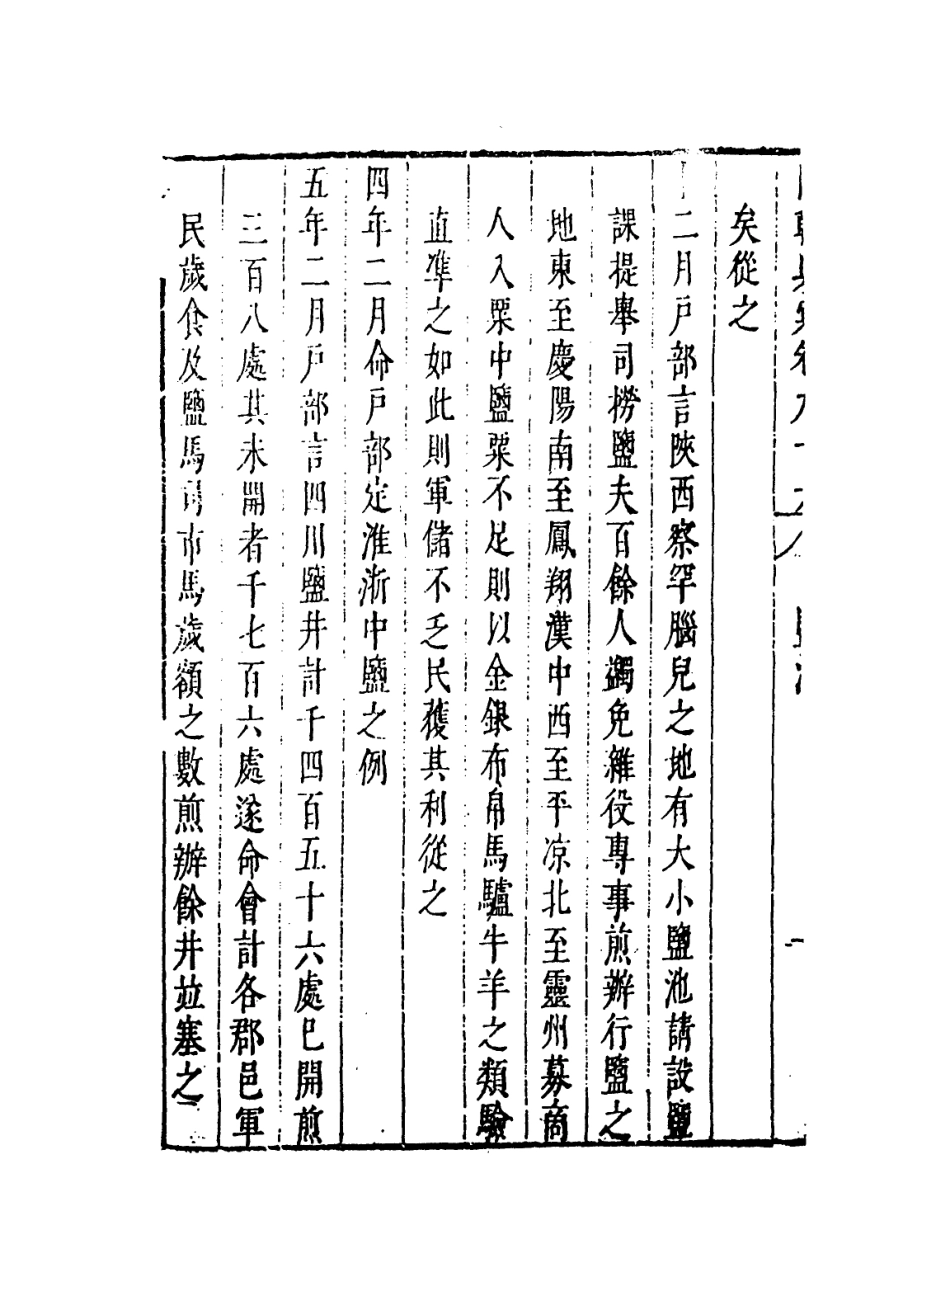 矣從之
十二月戶部言陝西察罕腦兒之地有大小鹽池請設鹽
課提舉司撈鹽夫百餘人蠲免雜役專事煎辦行鹽之
地東至慶陽南至鳳翔漢中西至平凉北至靈州募商
人入粟中鹽粟不足則以金銀布帛馬驢牛羊之類驗
直準之如此則軍儲不乏民獲其利從之
四年二月命戶部定淮浙中鹽之例
五年二月戶部言四川鹽井計千四百五十六處巳開煎
三百八處其未開者千七百六處遂命會計各郡邑軍
民歲食及鹽馬司市馬歲額之數煎辦餘井並塞之